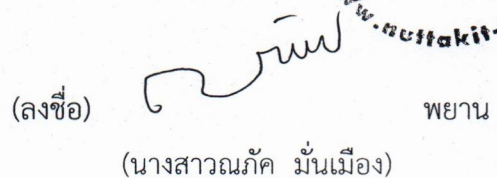 w.nuttakit-
(ลงชื่อ) พยาน
(นางสาวณภัค มั่นเมือง)